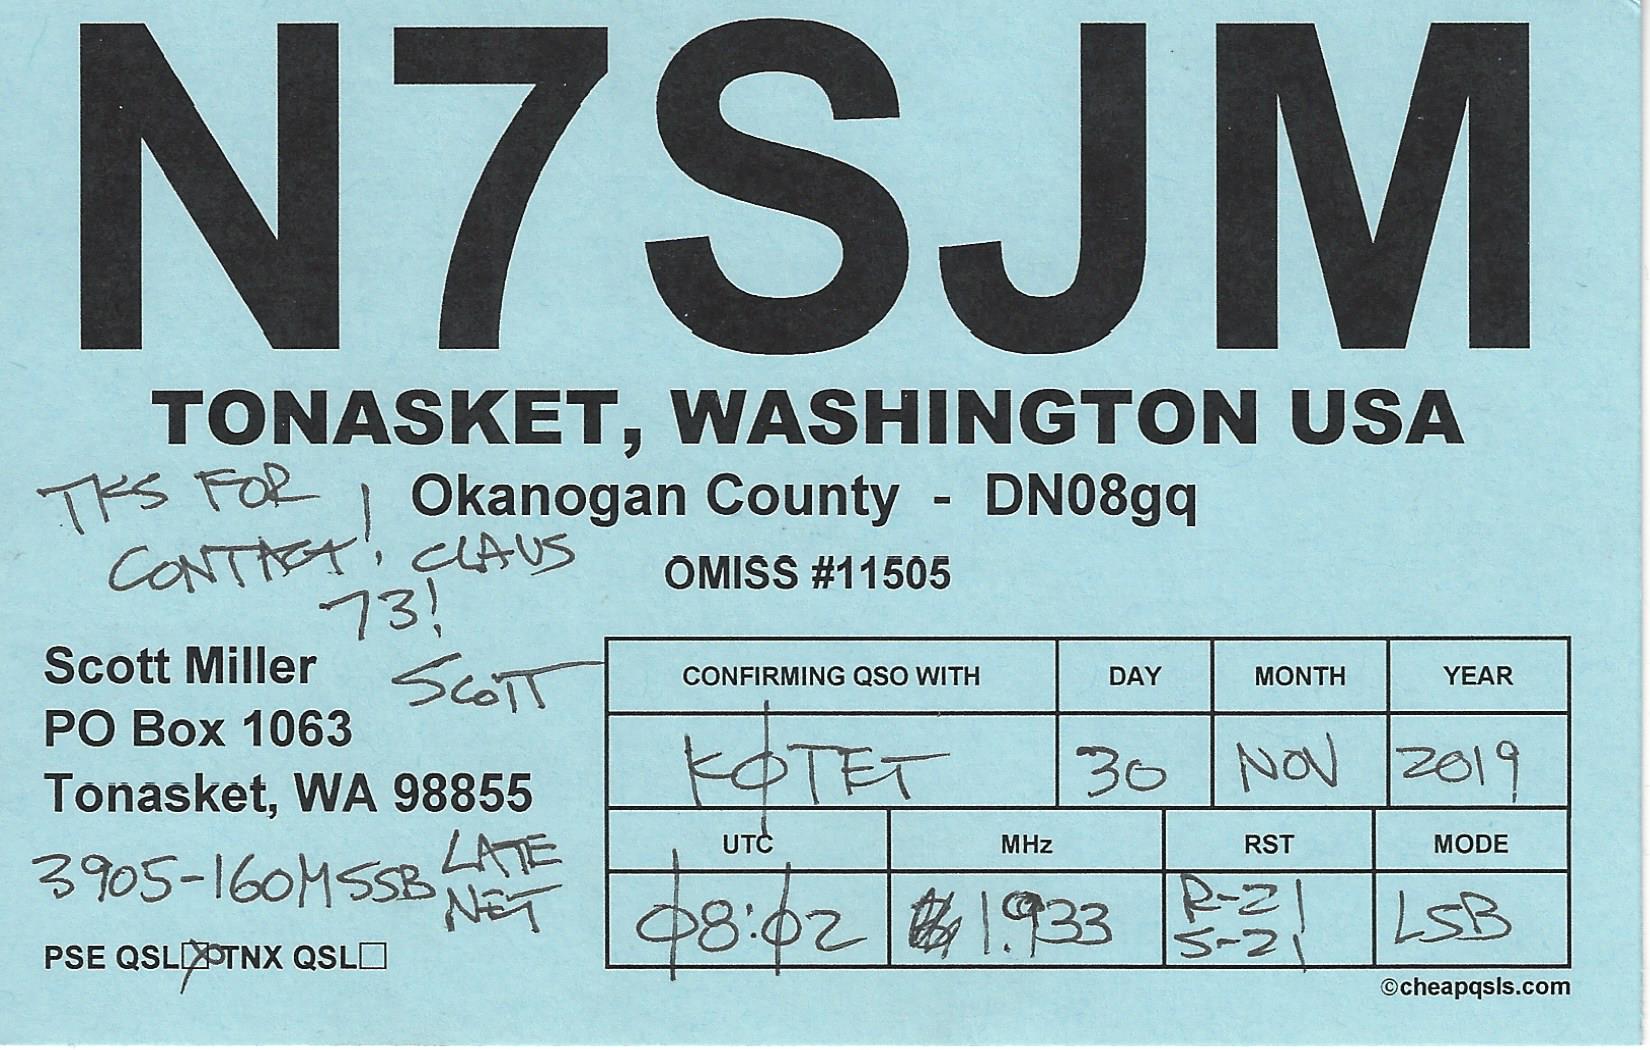 N7SJM
TONASKET, WASHINGTON USA
Okanogan County - DN08gq
OMISS #11505
TKS FOR
CONTACT! CLAUS
73!
SCOTT
Scott Miller
PO Box 1063
Tonasket, WA 98855
3905-160M SSB LATE
NET
PSE QSL☒ TNX QSL☐
CONFIRMING QSO WITH DAY MONTH YEAR
KØTET 30 NOV 2019
UTC MHz RST MODE
Ø8:Ø2 1.933 R-21 LSB
S-21
©cheapqsls.com